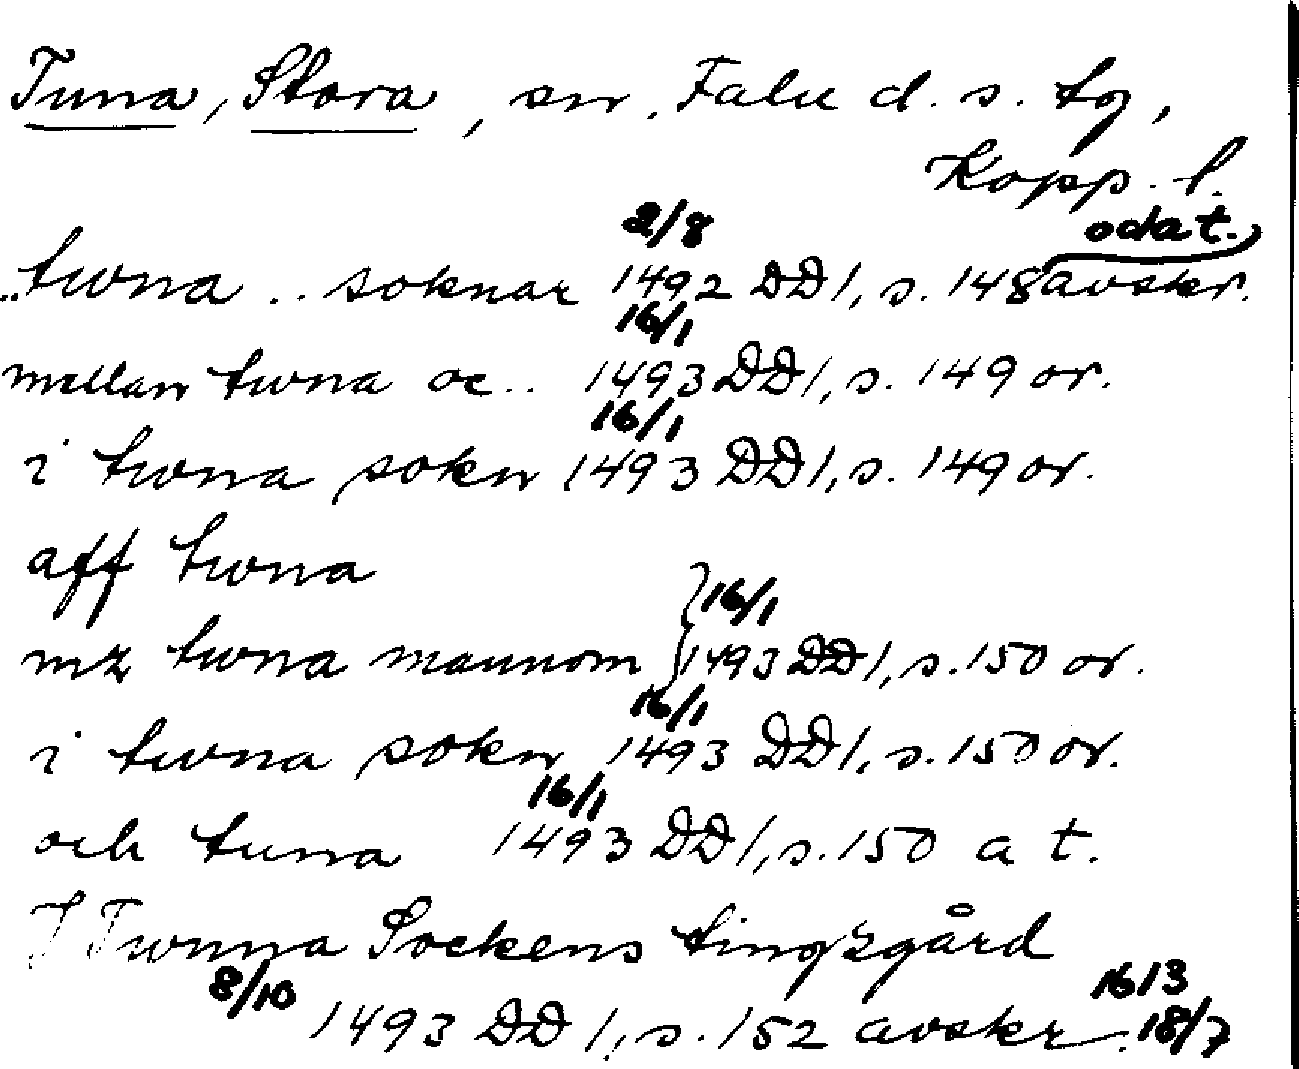 Tuna, Stora, sn, Falu d. s. tg,
Kopp. l.
2/8 odat.
..twna .. soknar 1492 DD 1, s. 148 avskr.
16/1
mellan twna oc.. 1493 DD 1, s. 149 or.
16/1
i twna sokn 1493 DD 1, s. 149 or.
aff twna
16/1
mz twna mannom 1493 DD 1, s. 150 or.
16/1
i twna sokn 1493 DD 1, s. 150 or.
16/1
och tuna 1493 DD 1, s. 150 a t.
I Twnna Sockens tingzgård
8/10 1613
1493 DD 1, s. 152 avskr. 18/7